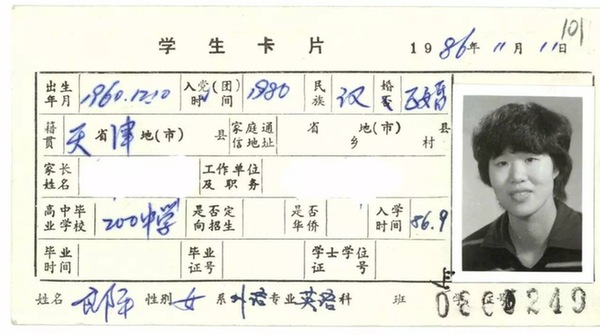 101
学生卡片 1986年11月11日
出生年月 1960.12.10 入党(团)时间 1980 民族 汉 婚否 已婚
籍贯 天省津地(市) 县 家庭通信地址 省 地(市) 县 乡 村
家长姓名 工作单位及职务
高中毕业学校 200中学 是否定向招生 是否华侨 入学时间 86.9
毕业时间 毕业证号 学士学位证号
姓名 郎平 性别 女 系 外语 专业 英语 科 班 学 证号